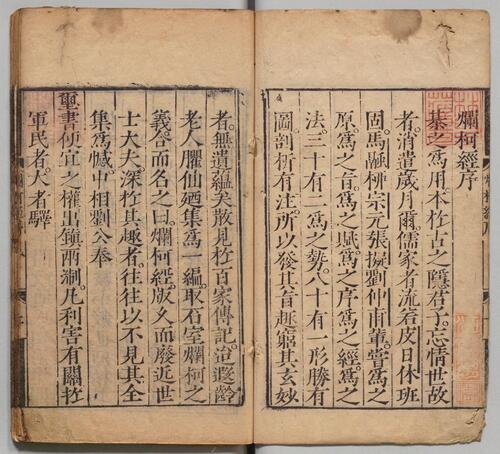 爛柯經序
棊之爲用本於古之隱君子忘情世故
者消遣歲月爾儒家者流若皮日休班
固馬融柳宗元張擬劉仲甫輩嘗爲之
原爲之旨爲之賦爲之序爲之經爲之
法三十有二爲之勢八十有一形勝有
圖剖析有注所以發其旨趣窮其玄妙
者無遺蘊矣散見於百家傳記迨遐齡
老人臞仙廼集爲一編取石室爛柯之
義合而名之曰爛柯經版久而廢近世
士大夫深於其趣者往往以不見其全
集爲憾中相劉公奉
璽書便宜之權出鎮兩淛凡利害有關於
軍民者人者驛